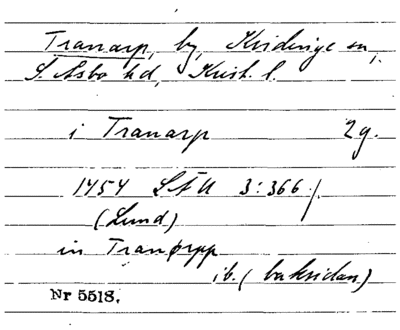 Tranarp, by, Kvidinge sn,
S. Åsbo hd, Krist. l.
i Tranarp 2g.
1454 LÄU 3:366 /.
(Lund)
in Tranørpp
ib. (baksidan)
Nr 5518.